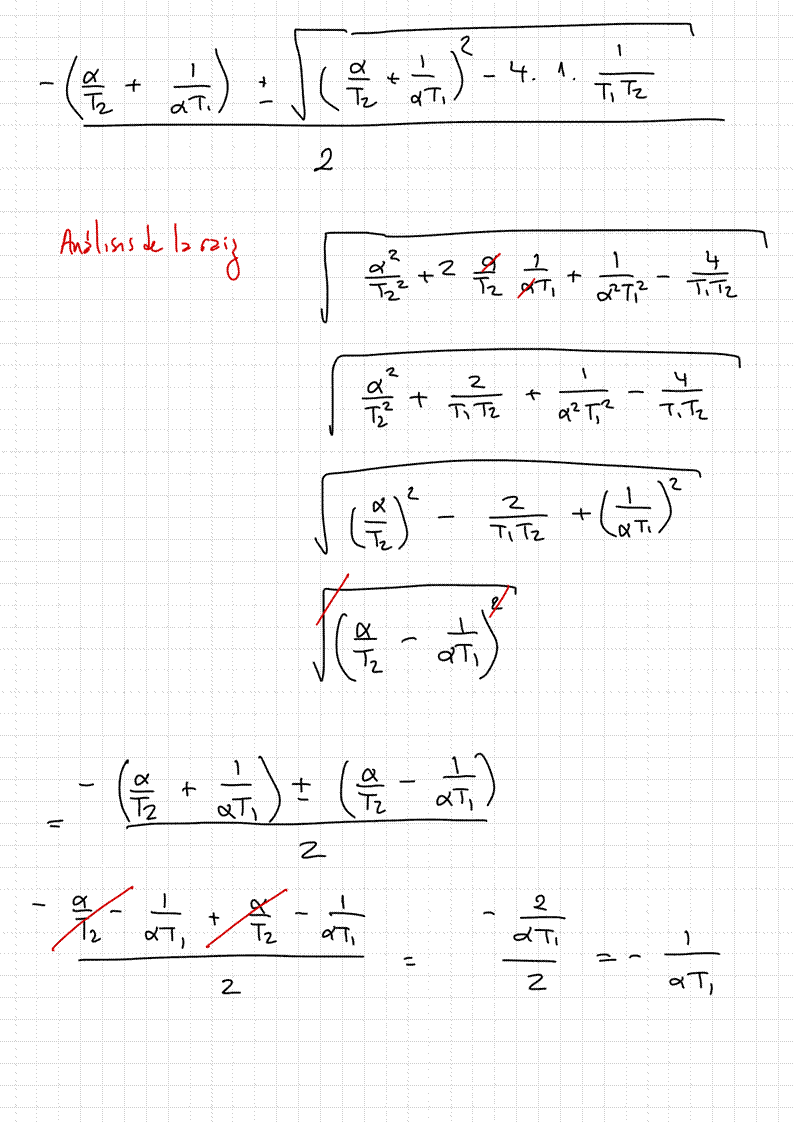 -(α/T₂ + 1/(αT₁)) ± √((α/T₂ + 1/(αT₁))² - 4 · 1 · 1/(T₁T₂))
2
Análisis de la raiz √(α²/T₂² + 2 α/T₂ 1/(αT₁) + 1/(α²T₁²) - 4/(T₁T₂))
√(α²/T₂² + 2/(T₁T₂) + 1/(α²T₁²) - 4/(T₁T₂))
√((α/T₂)² - 2/(T₁T₂) + (1/(αT₁))²)
√((α/T₂ - 1/(αT₁))²)
= (-(α/T₂ + 1/(αT₁)) ± (α/T₂ - 1/(αT₁)))/2
(-α/T₂ - 1/(αT₁) + α/T₂ - 1/(αT₁))/2 = (-2/(αT₁))/2 = -1/(αT₁)